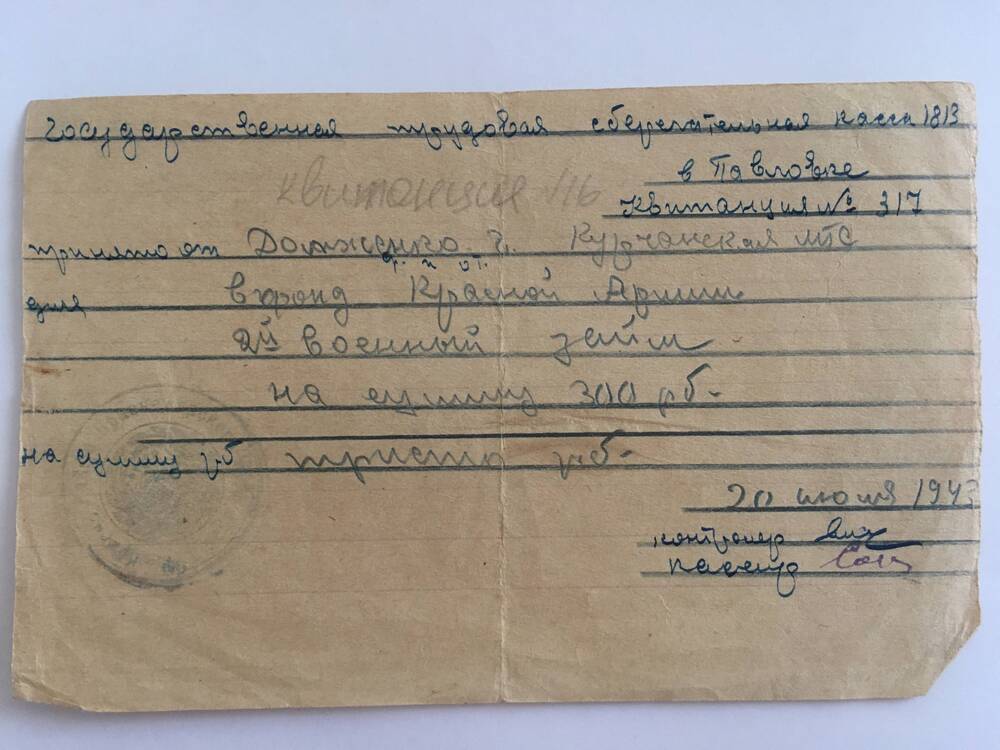 Государственная трудовая сберегательная касса 1813
в Павловке
Квитанция №16
Квитанция № 317
принято от Долженко. г. Курчанская мтс
для в фонд Красной Армии
2й военный займ
на сумму 300 рб-
на сумму рб триста рб-
20 июля 1943
контролер
кассир